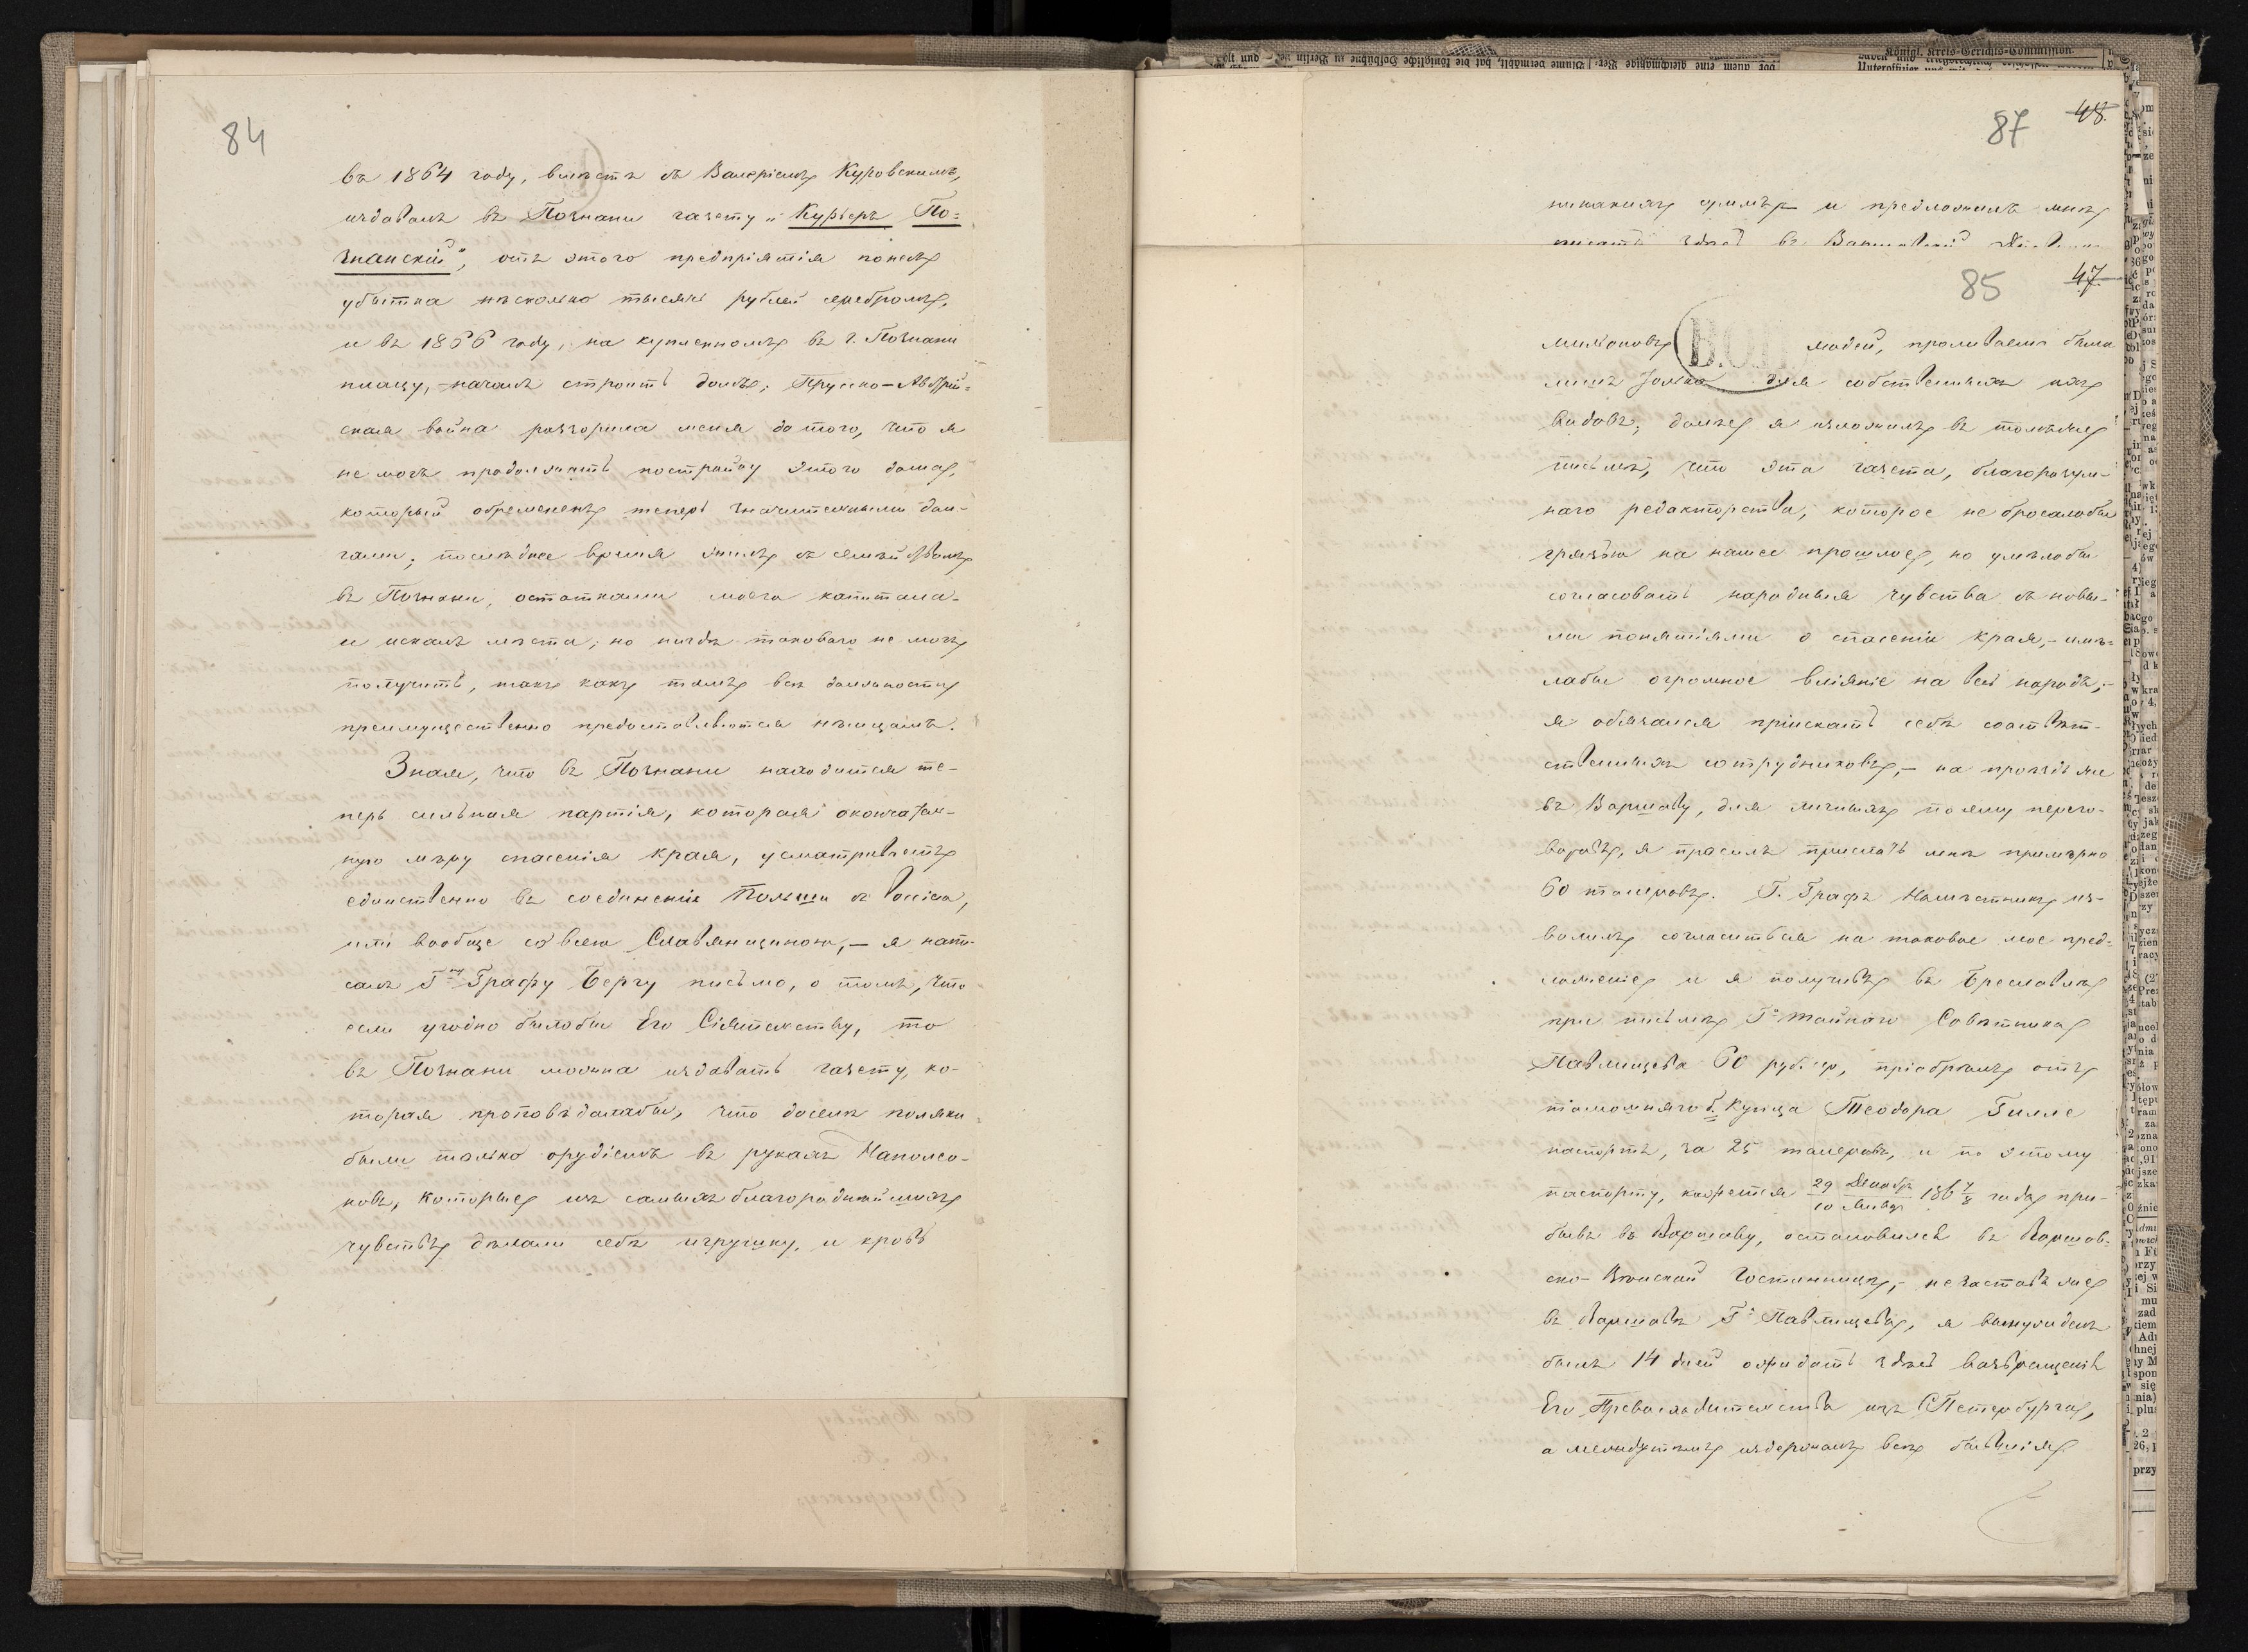 84
въ 1864 году, вмѣстѣ съ Валеріемъ Куровскимъ,
издавалъ въ Познани газету „Курьеръ По=
знанскій", отъ этого предпріятія понесъ
убытка нѣсколько тысячъ рублей серебромъ,
и въ 1866 году, на купленномъ въ г. Познани
плацу, началъ строить домъ; Прусско-Австрій=
ская война разорила меня до того, что я
не могъ продолжать постройку этого дома,
который обремененъ теперь значительными дол-
гами; послѣднее время жилъ съ семействомъ
въ Познани, остатками моего капитала
и искалъ мѣста; но нигдѣ таковаго не могъ
получить, такъ какъ тамъ всѣ должности
преимущественно предоставляются нѣмцамъ.
Зная, что въ Познани находится те-
перь сильная партія, которая окончатель-
ную мѣру спасенія края, усматриваетъ
единственно въ соединеніи Польши съ Россіею,
или вообще со всею Славянщиною,- я напи-
салъ Гну Графу Бергу письмо, о томъ, что
если угодно было бы Его Сіятельству, то
въ Познани можно издавать газету, ко-
торая проповѣдала бы, что доселѣ поляки
были только орудіемъ въ рукахъ Наполео-
новъ, которые изъ самыхъ благороднѣйшихъ
чувствъ дѣлали себѣ игрушку, и кровь
87 48.
никакихъ суммъ и предложилъ мнѣ
писать здѣсь въ Варшавскій
85 47
милліоновъ людей, проливаема была
лишь только для собственныхъ ихъ
видовъ; далѣе я изложилъ въ томъ же
письмѣ, что эта газета, благоразум-
наго редакторства, которое не бросало бы
грязью на наше прошлое, но умѣло бы
согласовать народныя чувства съ новы-
ми понятіями о спасеніи края,- имѣ=
ла бы огромное вліяніе на весь народъ;-
я обязался пріискать себѣ соотвѣт-
ственныхъ сотрудниковъ,- на проѣздъ же
въ Варшаву, для личныхъ по сему перего-
воровъ, я просилъ прислать мнѣ примѣрно
60 талеровъ. Г. Графъ Намѣстникъ из-
волилъ согласиться на таковое мое пред-
ложеніе и я получивъ въ Бреславлѣ
при письмѣ Га Тайнаго Совѣтника
Павлищева 60 руб. сер, пріобрѣлъ отъ
тамошняго б. Купца Теодора Гилле
паспортъ, за 25 талеровъ, и по этому
паспорту, кажется 29 Декабр / 10 Январ 186 7/8 года при-
бывъ въ Варшаву, остановился въ Варшав-
ско-Вѣнской Гостинницѣ,- не заставъ же
въ Варшавѣ Га Павлищева, я вынужденъ
былъ 14 дней ожидать здѣсь возвращенія
Его Превосходительства изъ СПетербурга,
а между тѣмъ издержалъ всѣ бывшія
Königl. Kreis-Gerichts-Commission.